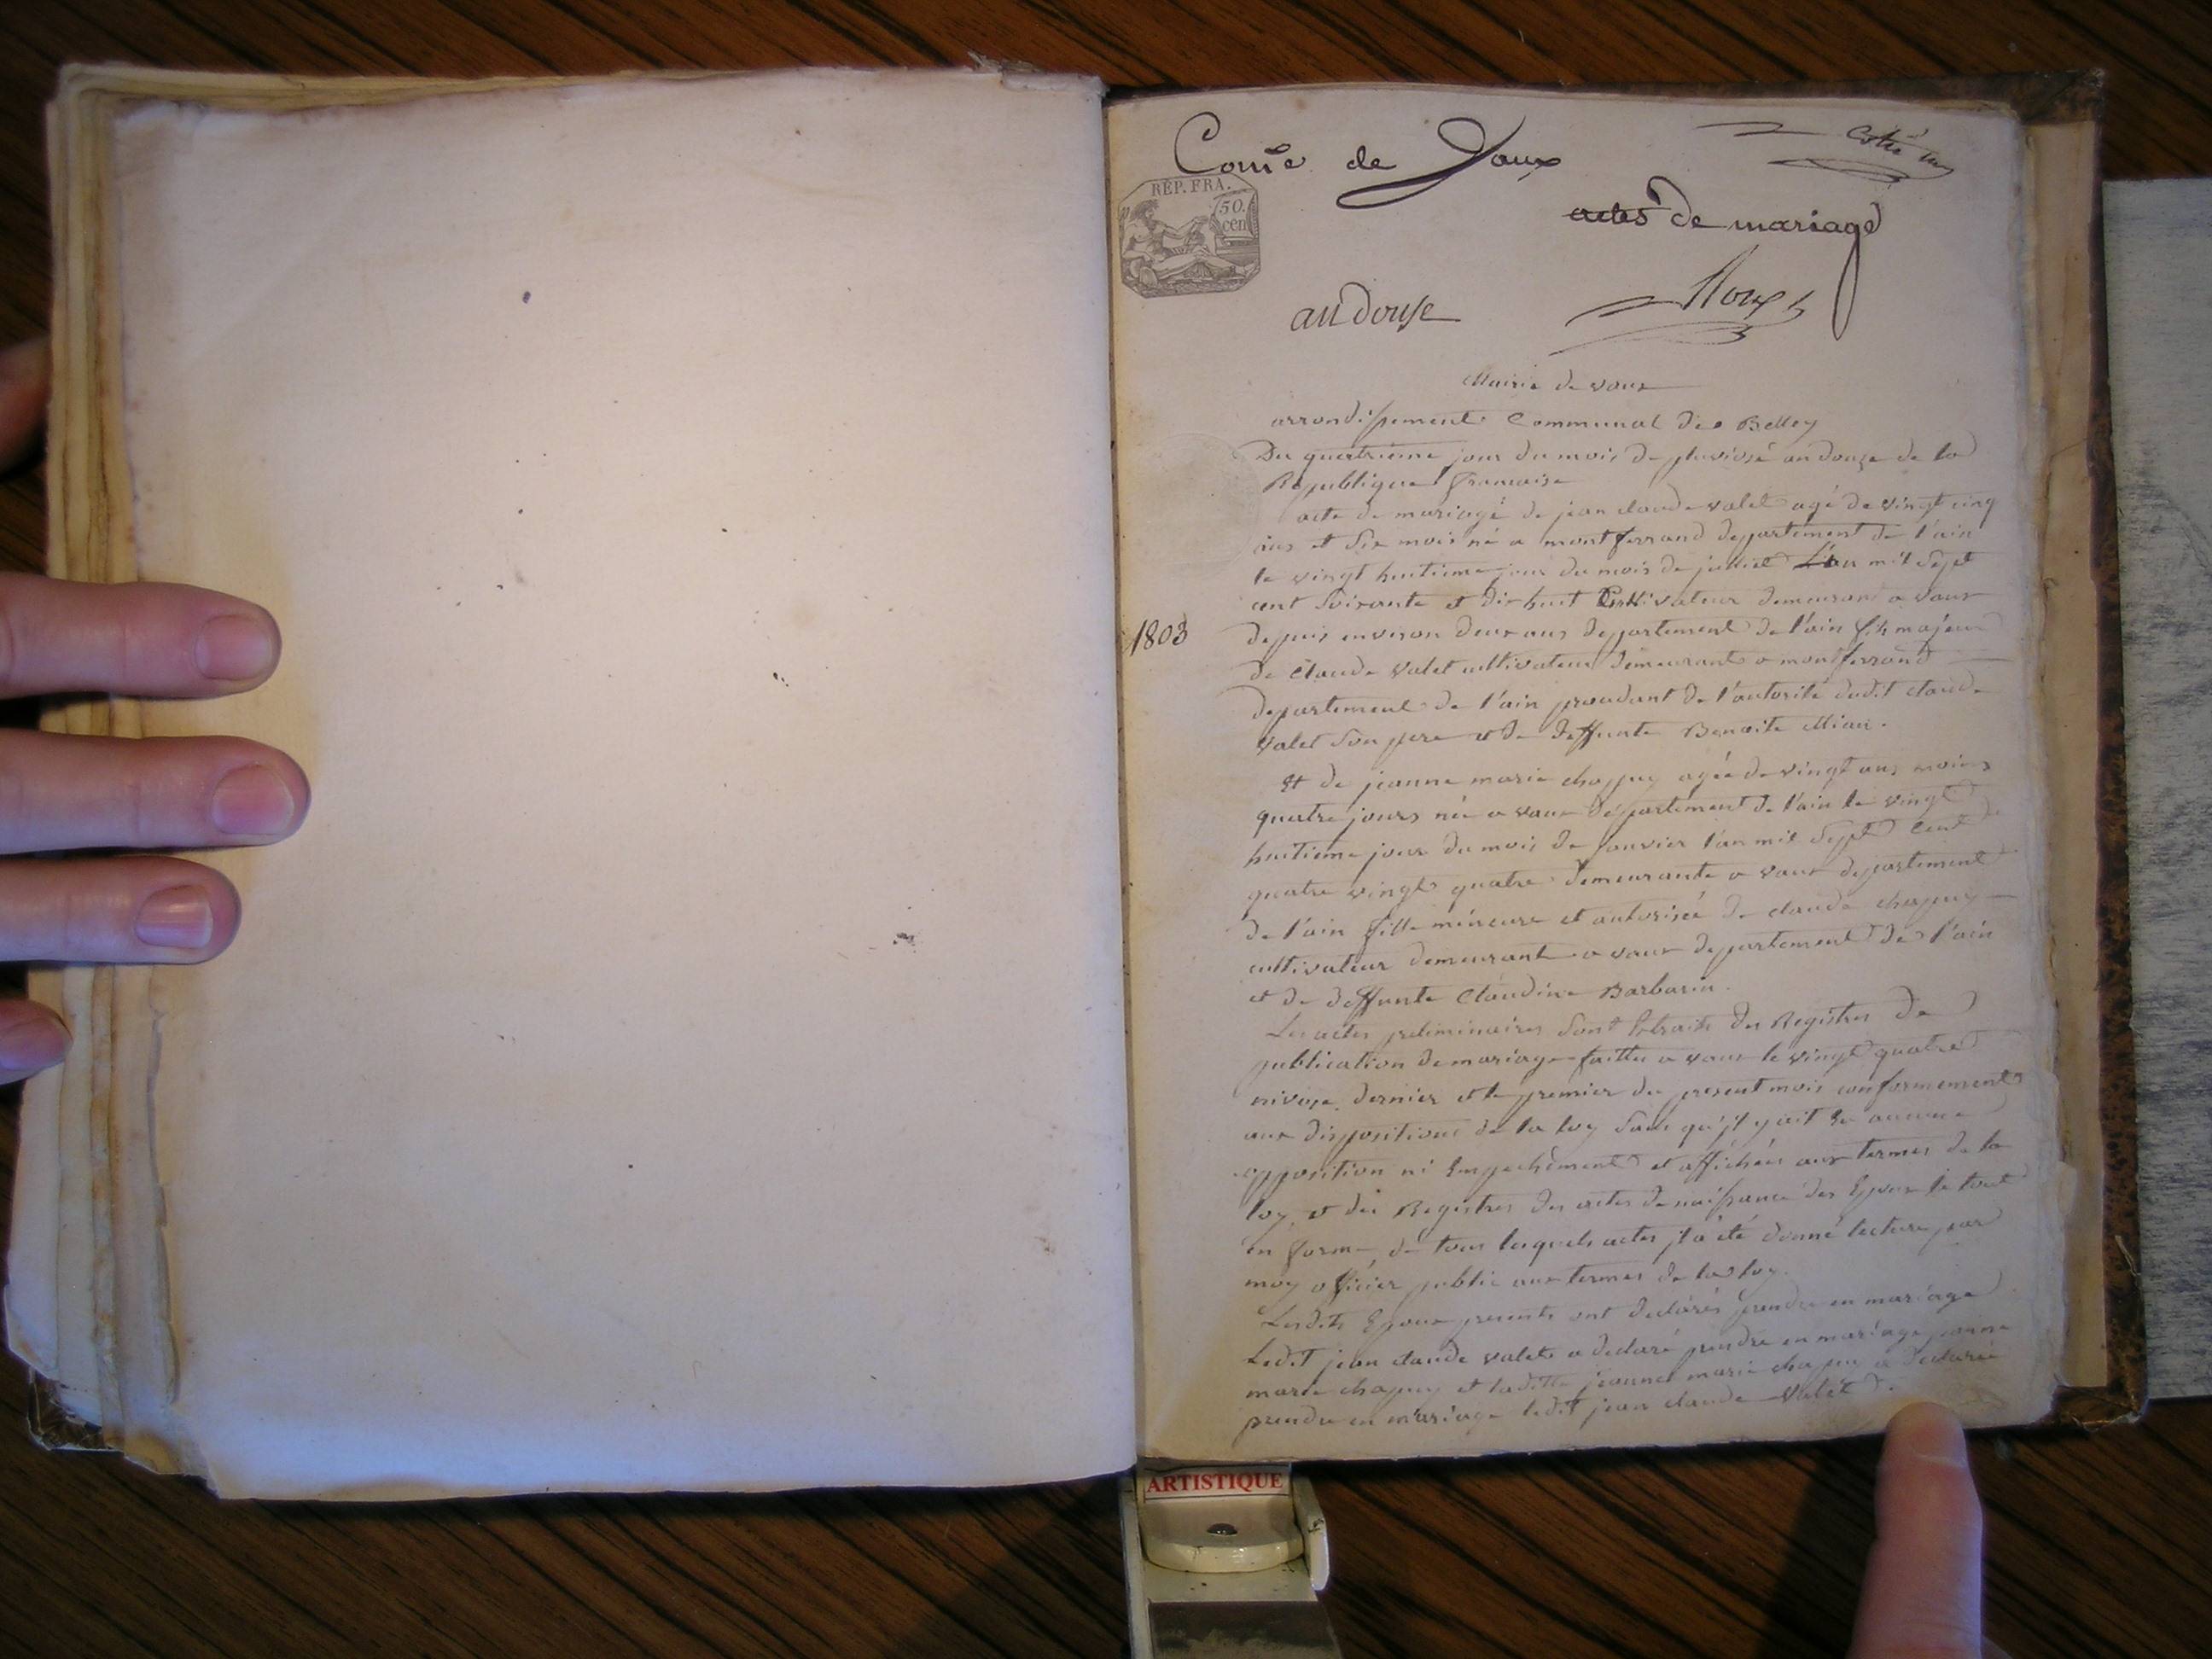 Comᵉ de Vaux
Cotté un
REP. FRA.
50.
cen
actes de mariage
an douse
Roux
Mairie de vaux
arrondissement Communal de Belley
Du quatrieme jour du mois de pluviose an douze de la
Republique francaise
acte de mariage de jean claude valet agé de vingt cinq
ans et six mois né a montferrand departement de l'ain
le vingt huitieme jour du mois de juillet L'an mil sept
cent soixante et dix huit Cultivateur demeurant a vaux
1803
depuis environ deux ans departement de l'ain fils majeur
de Claude valet cultivateur demeurant a montferrand
departement de l'ain procedant de l'autorité dudit claude
valet son pere et de deffunte Benoite Mian.
Et de jeanne marie chappuy agée de vingt ans moins
quatre jours née a vaux departement de l'ain le vingt
huitieme jour du mois de janvier l'an mil sept cent
quatre vingt quatre demeurante a vaux departement
de l'ain fille mineure et autorisée de claude chapuy
cultivateur demeurant a vaux departement de l'ain
et de deffunte Claudine Barbarin.
Les actes preliminaires sont Extraits des Registres de
publication de mariage faittes a vaux le vingt quatre
nivose dernier et le premier du present mois conformement
aux dispositions de la loy sans qu'jl y ait Eu aucune
opposition ni Empechement et affichées aux termes de la
loy, et des Registres des actes de naissance des Epoux le tout
en forme, de tous lesquels actes jl a été donné lecture par
moy officier public aux termes de la loy.
Lesdits Epoux presents ont declarés prendre en mariage
Ledit jean claude valet a declaré prendre en mariage jeanne
marie chapuy et laditte jeanne marie chapuy a declarée
prendre en mariage ledit jean claude valet
ARTISTIQUE